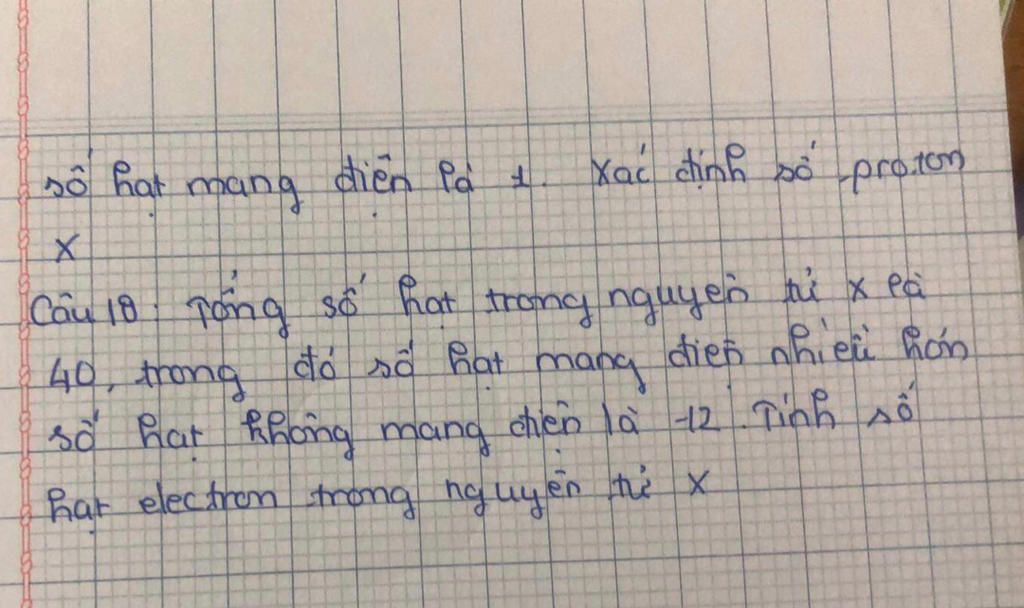 số hạt mang điện là 1. Xác định số proton
X
Câu 18: Tổng số hạt trong nguyên tử X là
40, trong đó số hạt mang điện nhiều hơn
số hạt không mang điện là 12. Tính số
hạt electron trong nguyên tử X